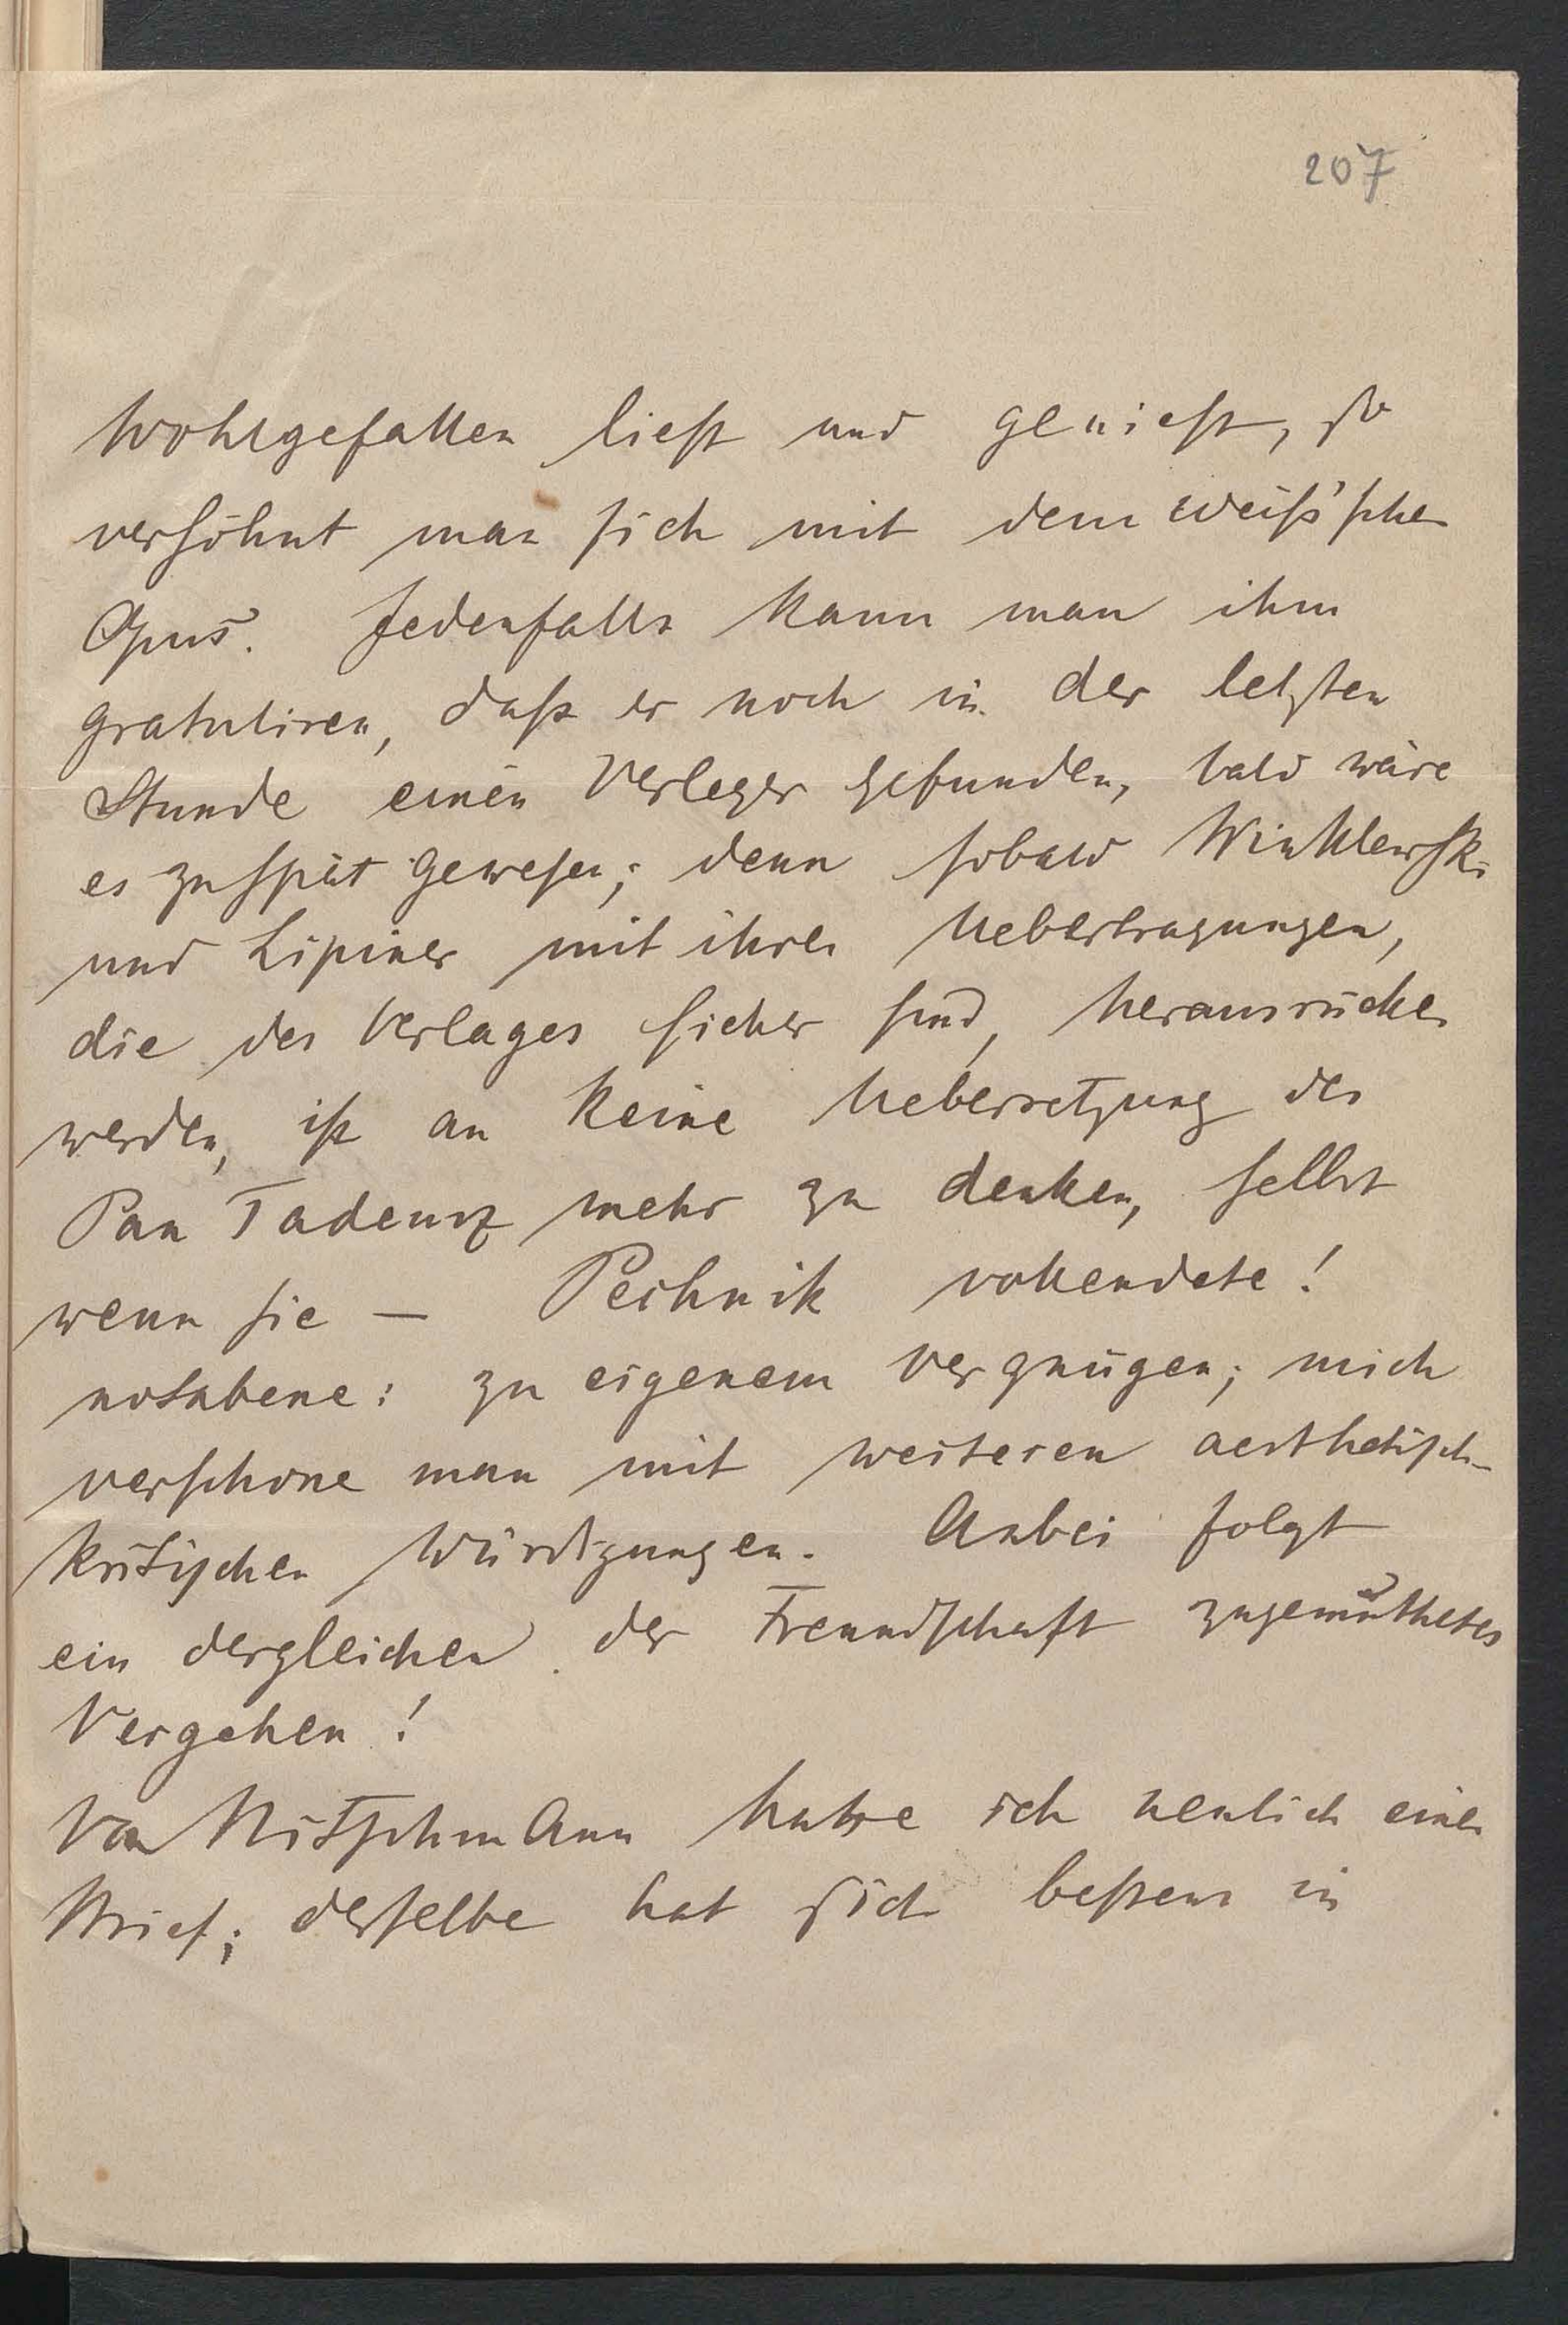 207
Wohlgefallen liest und genießt, so
versöhnt man sich mit dem Weiß'schen
Opus. Jedenfalls kann man ihm
gratuliren, daß er noch in der letzten
Stunde einen Verleger gefunden, bald wäre
es zu spät gewesen; denn sobald Winklewski
und Lipiner mit ihren Uebertragungen,
die des Verlages sicher sind, herausrücken
werden, ist an keine Uebersetzung des
Pan Tadeusz mehr zu denken, selbst
wenn sie — Pechnik vollendete!
notabene: zu eigenem Vergnügen; mich
verschone man mit weiteren aesthetisch-
kritischen Würdigungen. Anbei folgt
ein dergleichen der Freundschaft zugemuthetes
Vergehen!
Von Nitschmann hatte ich neulich einen
Brief; derselbe hat sich bestens in